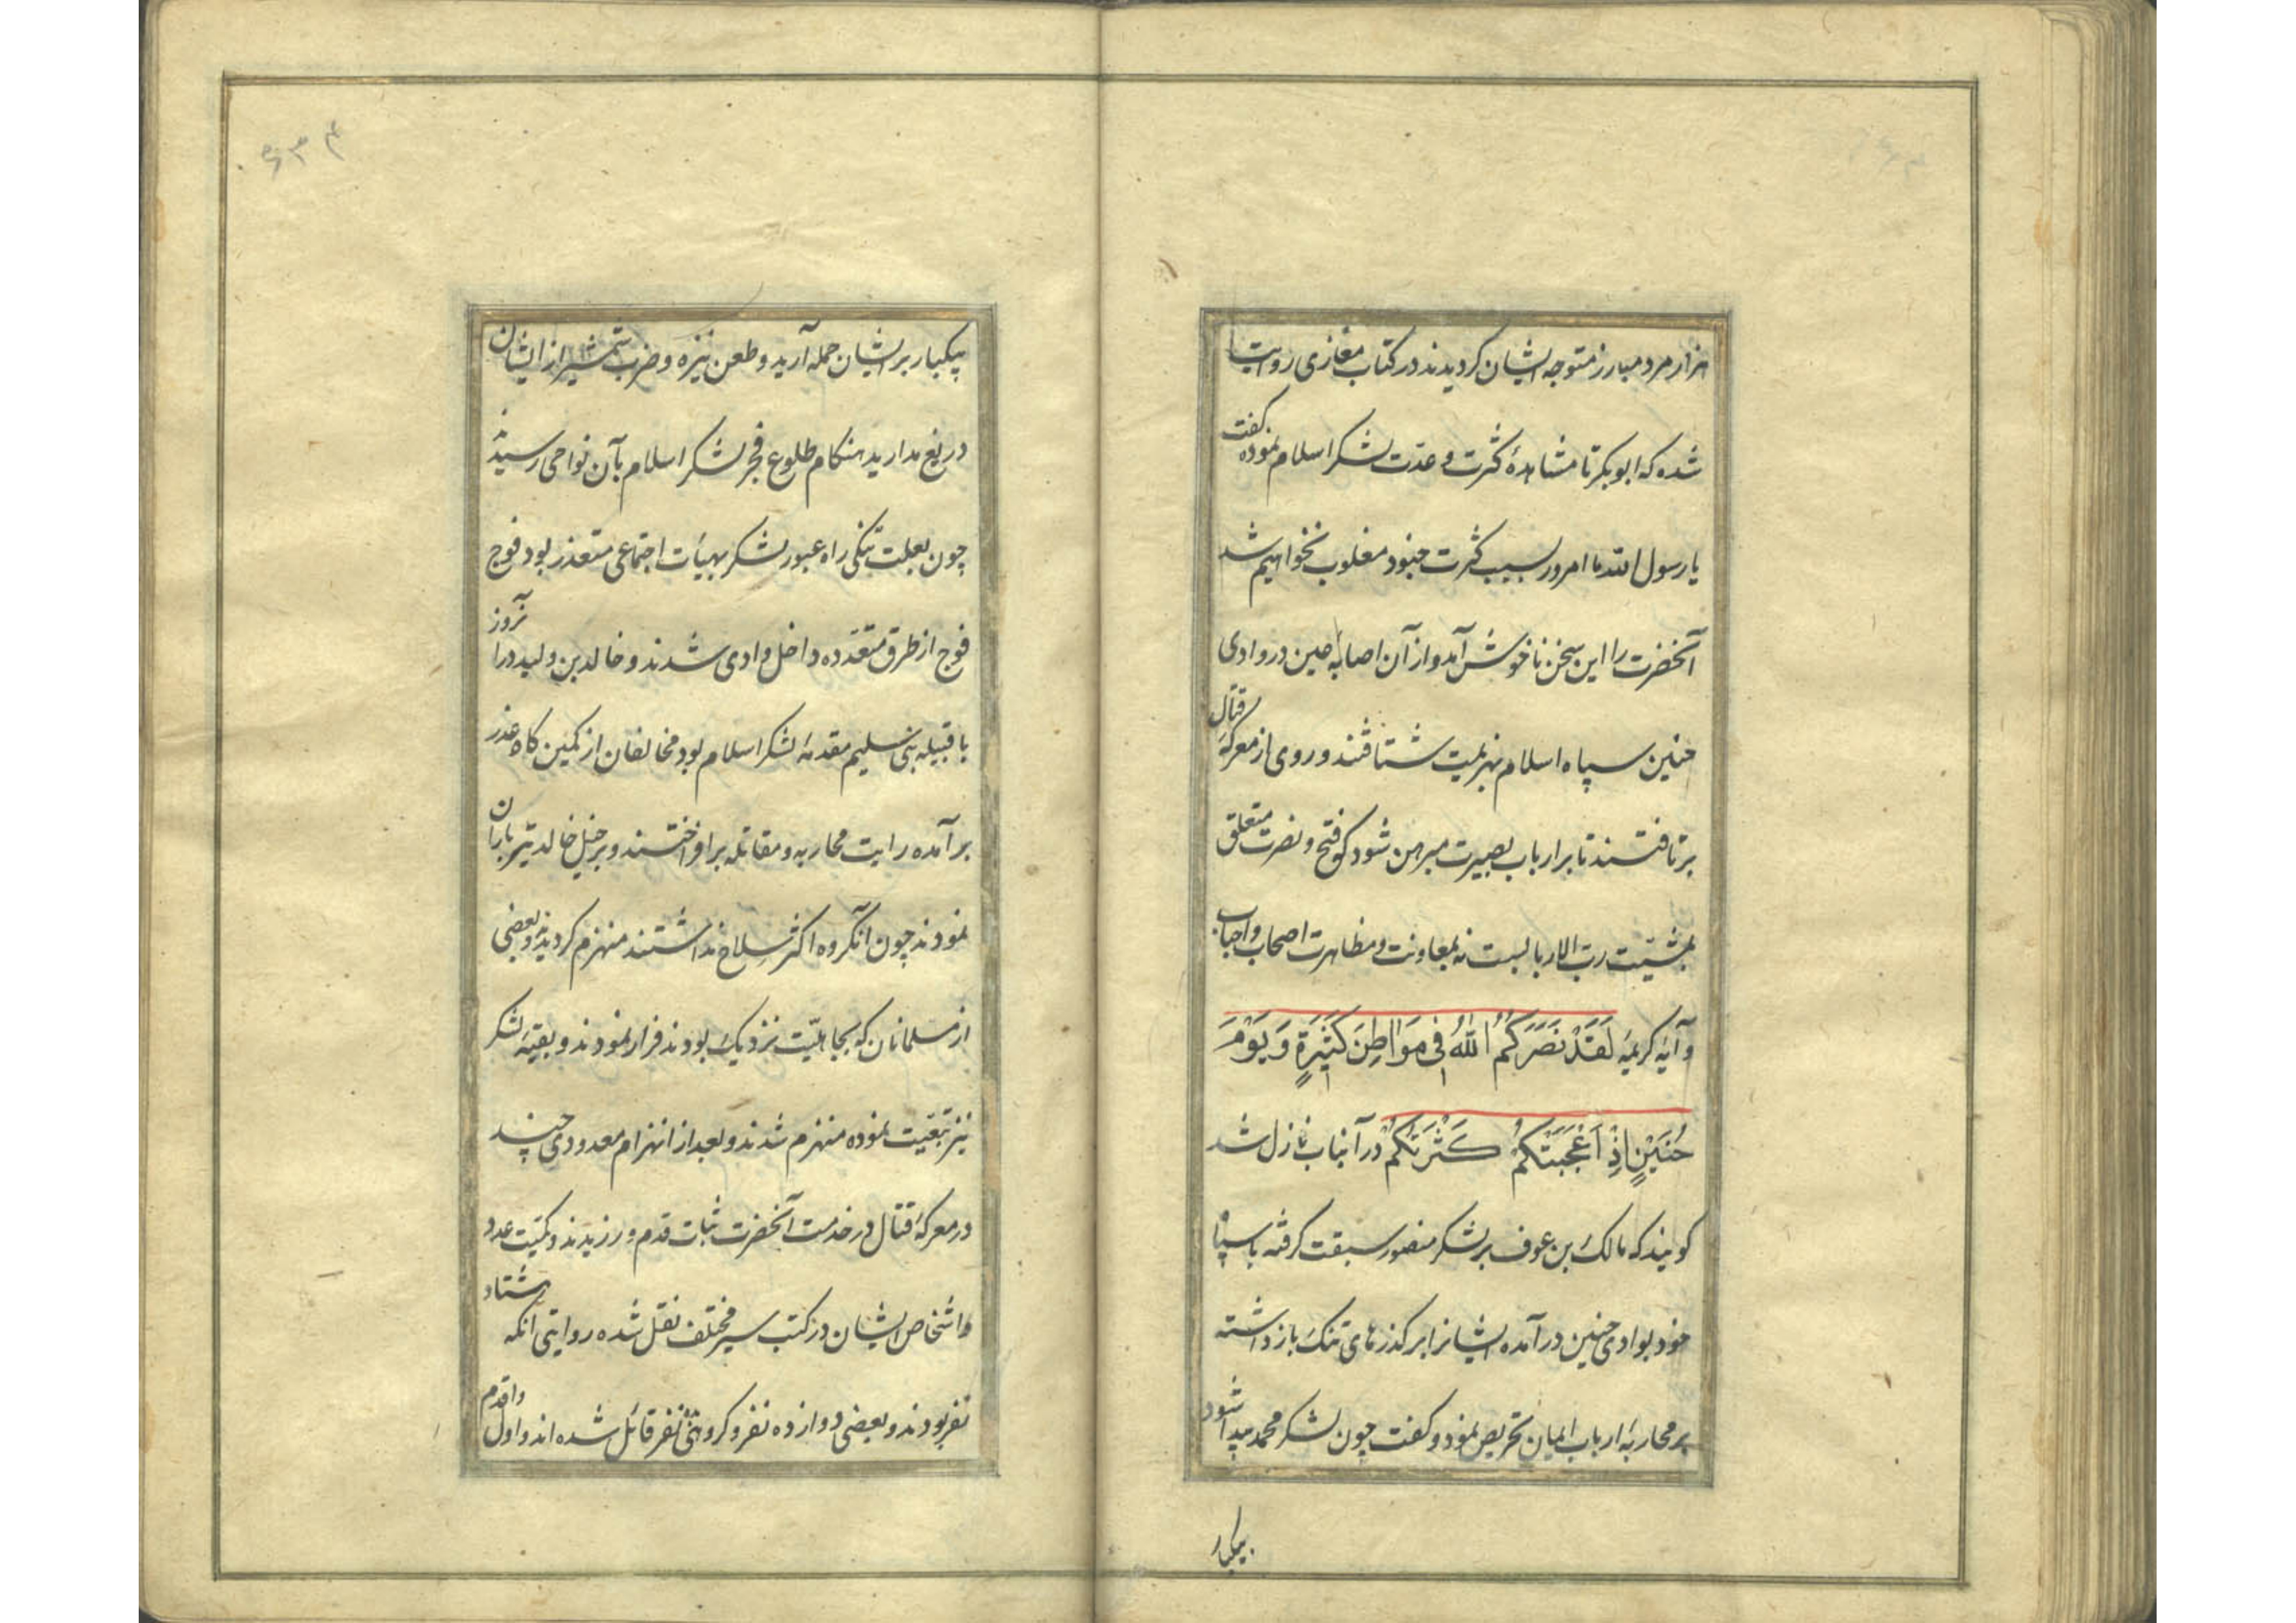 هزار مرد مبارز متوجه ایشان کردیدند در کتاب مغازی روایت
شده که ابوبکر تا مشاهدهٔ کثرت و عدّت لشکر اسلام نموده کفت
یا رسول الله ما امروز بسبب کثرت جنود مغلوب نخواهیم شد
آنحضرت را این سخن ناخوش آمد و از آن اصابهٔ عین در وادی
حنین سپاه اسلام بهزیمت شتافتند و روی از معرکهٔ قتال
برتافتند تا بر ارباب بصیرت مبرهن شود که فتح و نصرت متعلق
بمشیّت ربّ الاربابست نه بمعاونت و مظاهرت اصحاب و احباب
و آیهٔ کریمهٔ لَقَدْ نَصَرَكُمُ اللّٰهُ فِی مَوَاطِنَ كَثِیرَةٍ وَیَوْمَ
حُنَیْنٍ اِذْ اَعْجَبَتْكُمْ كَثْرَتُكُمْ در آنباب نازل شد
کویند که مالک بن عوف بر لشکر منصور سبقت کرفته با سپاه
خود بوادی حنین درآمده ایشانرا بر کذرهای تنک بازداشته
بر محاربهٔ ارباب ایمان تحریص نمود و کفت چون لشکر محمد پیدا شود
بیکبار
۴۳۶
بیکبار بر ایشان حمله آرید و طعن نیزه و ضرب شمشیر از ایشان
دریغ مدارید هنکام طلوع فجر لشکر اسلام بآن نواحی رسیدند
چون بعلت تنکی راه عبور لشکر بهیأت اجتماعی متعذر بود فوج
فوج از طرق متعدّده داخل وادی شدند و خالد بن ولید در آنروز
با قبیله بنی سلیم مقدمهٔ لشکر اسلام بود مخالفان از کمین کاه غدر
برآمده رایت محاربه و مقاتله برافراختند و بر خیل خالد تیرباران
نمودند چون آنکروه اکثر سلاح نداشتند منهزم کردیدند و بعضی
از مسلمانان که بجاهلیّت نزدیک بودند فرار نمودند و بقیهٔ لشکر
نیز تبعیت نموده منهزم شدند و بعد از انهزام معدودی چند
در معرکهٔ قتال در خدمت آنحضرت ثبات قدم ورزیدند و کمّیت عدد
و اشخاص ایشان در کتب سیر مختلف نقل شده روایتی آنکه هشتاد
نفر بودند و بعضی دوازده نفر و کروهی نفر قائل شده‌اند و اول و اقدم